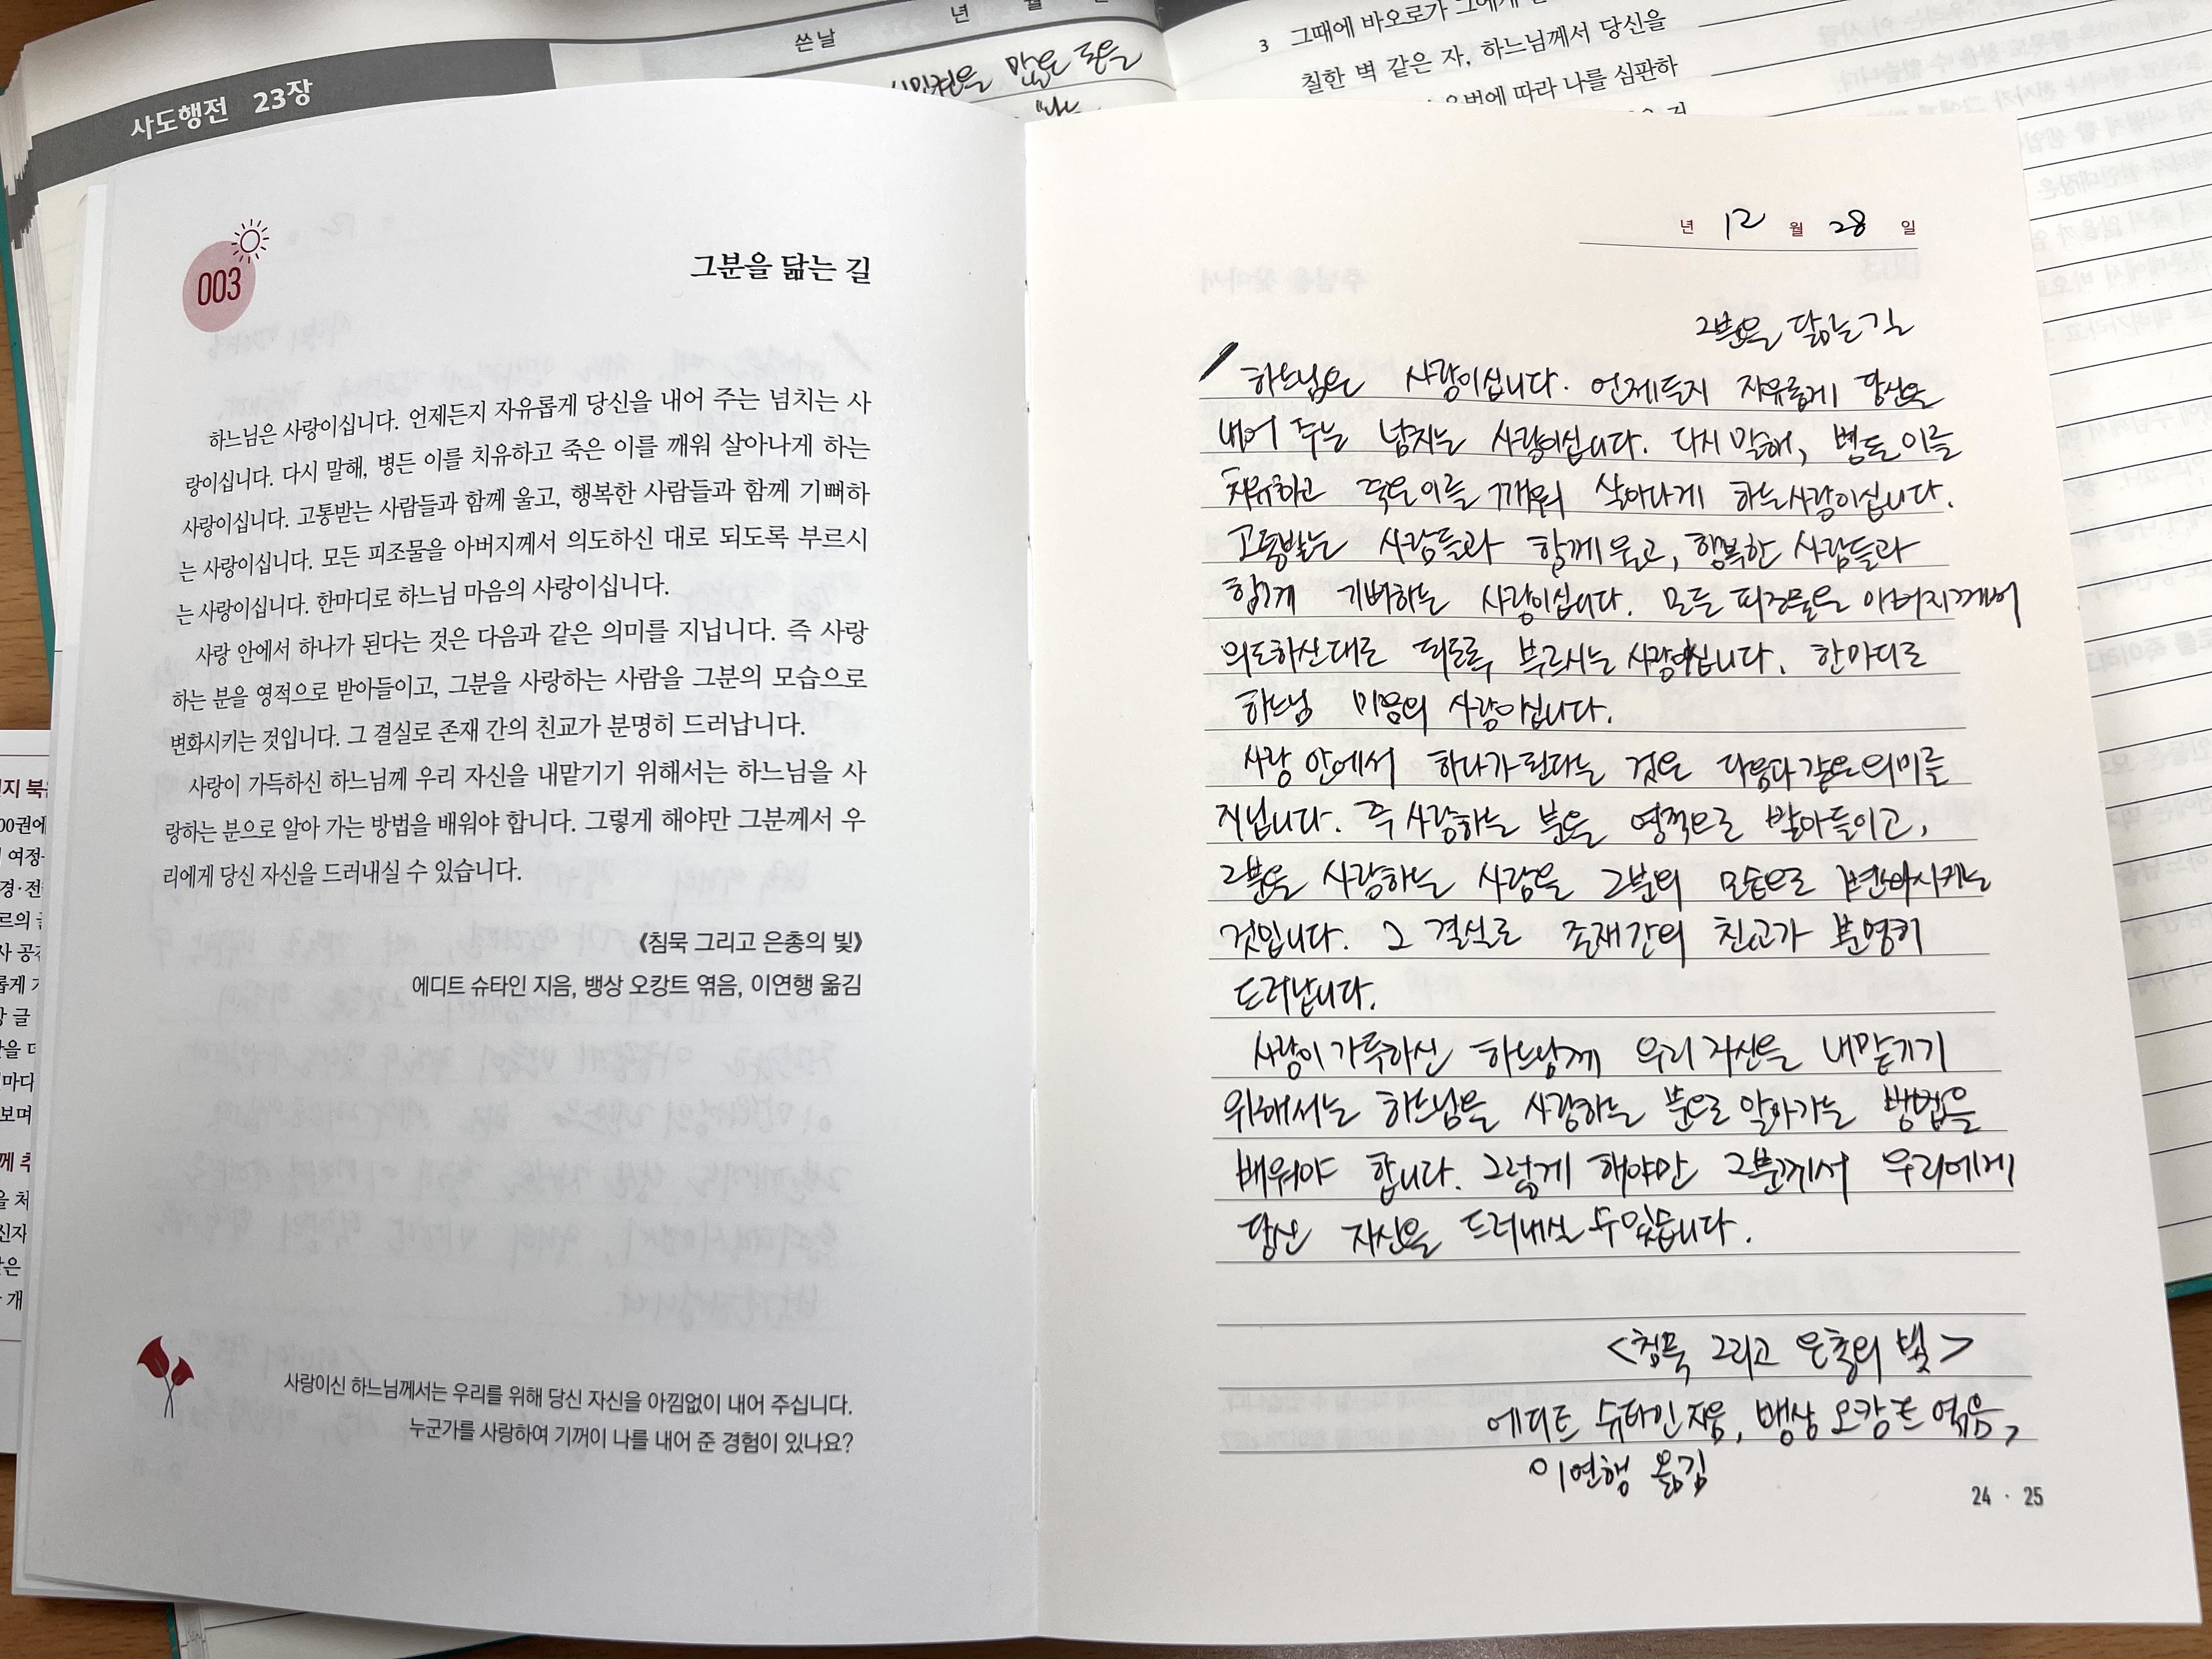 사도행전 23장
쓴날 년 월
많은 돈을
3 그때에 바오로가 그에게
칠한 벽 같은 자, 하느님께서 당신을
따라 나를 심판하
003
그분을 닮는 길
하느님은 사랑이십니다. 언제든지 자유롭게 당신을 내어 주는 넘치는 사
랑이십니다. 다시 말해, 병든 이를 치유하고 죽은 이를 깨워 살아나게 하는
사랑이십니다. 고통받는 사람들과 함께 울고, 행복한 사람들과 함께 기뻐하
는 사랑이십니다. 모든 피조물을 아버지께서 의도하신 대로 되도록 부르시
는 사랑이십니다. 한마디로 하느님 마음의 사랑이십니다.
사랑 안에서 하나가 된다는 것은 다음과 같은 의미를 지닙니다. 즉 사랑
하는 분을 영적으로 받아들이고, 그분을 사랑하는 사람을 그분의 모습으로
변화시키는 것입니다. 그 결실로 존재 간의 친교가 분명히 드러납니다.
사랑이 가득하신 하느님께 우리 자신을 내맡기기 위해서는 하느님을 사
랑하는 분으로 알아 가는 방법을 배워야 합니다. 그렇게 해야만 그분께서 우
리에게 당신 자신을 드러내실 수 있습니다.
《침묵 그리고 은총의 빛》
에디트 슈타인 지음, 뱅상 오캉트 엮음, 이연행 옮김
사랑이신 하느님께서는 우리를 위해 당신 자신을 아낌없이 내어 주십니다.
누군가를 사랑하여 기꺼이 나를 내어 준 경험이 있나요?
년 12 월 28 일
그분을 닮는 길
하느님은 사랑이십니다. 언제든지 자유롭게 당신을
내어 주는 넘치는 사랑이십니다. 다시 말해, 병든 이를
치유하고 죽은 이를 깨워 살아나게 하는 사랑이십니다.
고통받는 사람들과 함께 울고, 행복한 사람들과
함께 기뻐하는 사랑이십니다. 모든 피조물을 아버지께서
의도하신 대로 되도록 부르시는 사랑이십니다. 한마디로
하느님 마음의 사랑이십니다.
사랑 안에서 하나가 된다는 것은 다음과 같은 의미를
지닙니다. 즉 사랑하는 분을 영적으로 받아들이고,
그분을 사랑하는 사람을 그분의 모습으로 변화시키는
것입니다. 그 결실로 존재 간의 친교가 분명히
드러납니다.
사랑이 가득하신 하느님께 우리 자신을 내맡기기
위해서는 하느님을 사랑하는 분으로 알아가는 방법을
배워야 합니다. 그렇게 해야만 그분께서 우리에게
당신 자신을 드러내실 수 있습니다.
<침묵 그리고 은총의 빛>
에디트 슈타인 지음, 뱅상 오캉트 엮음,
이연행 옮김
24 · 25